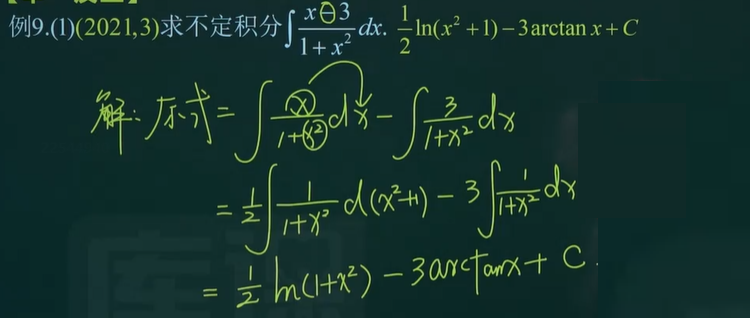 例9.(1)(2021,3)求不定积分∫ x-3 / 1+x² dx. 1/2 ln(x²+1)-3arctan x+C
解: 原式=∫ x / 1+x² dx - ∫ 3 / 1+x² dx
= 1/2 ∫ 1 / 1+x² d(x²+1) - 3∫ 1 / 1+x² dx
= 1/2 ln(1+x²) - 3arctanx + C.